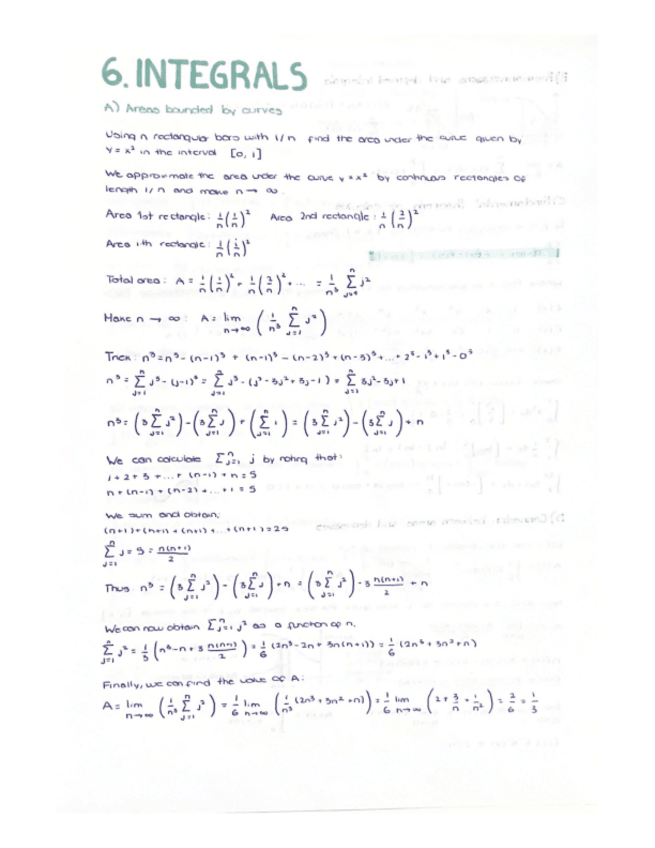 6. INTEGRALS
A) Areas bounded by curves
Using n rectangular bars with 1/n find the area under the curve given by
y = x² in the interval [0, 1]
We approximate the area under the curve y = x² by continuos rectangles of
length 1/n and make n → ∞.
Area 1st rectangle: 1/n (1/n)² Area 2nd rectangle: 1/n (2/n)²
Area ith rectangle: 1/n (i/n)²
Total area: A = 1/n (1/n)² + 1/n (2/n)² + ... = 1/n³ Σⁿⱼ₌₁ j²
Make n → ∞: A = lim n→∞ (1/n³ Σⁿⱼ₌₁ j²)
Then: n³ = n³ - (n-1)³ + (n-1)³ - (n-2)³ + (n-3)³ + ... + 2³ - 1³ + 1³ - 0³
n³ = Σⁿⱼ₌₁ j³ - (j-1)³ = Σⁿⱼ₌₁ j³ - (j³ - 3j² + 3j - 1) = Σⁿⱼ₌₁ 3j² - 3j + 1
n³ = (3 Σⁿⱼ₌₁ j²) - (3 Σⁿⱼ₌₁ j) + (Σⁿⱼ₌₁ 1) = (3 Σⁿⱼ₌₁ j²) - (3 Σⁿⱼ₌₁ j) + n
We can calculate Σⁿⱼ₌₁ j by noting that:
1 + 2 + 3 + ... + (n-1) + n = S
n + (n-1) + (n-2) + ... + 1 = S
We sum and obtain:
(n+1) + (n+1) + (n+1) + ... + (n+1) = 2S
Σⁿⱼ₌₁ j = S = n(n+1)/2
Thus: n³ = (3 Σⁿⱼ₌₁ j²) - (3 Σⁿⱼ₌₁ j) + n = (3 Σⁿⱼ₌₁ j²) - 3 n(n+1)/2 + n
We can now obtain Σⁿⱼ₌₁ j² as a function of n.
Σⁿⱼ₌₁ j² = 1/3 (n³ - n + 3 n(n+1)/2) = 1/6 (2n³ - 2n + 3n(n+1)) = 1/6 (2n³ + 3n² + n)
Finally, we can find the value of A:
A = lim n→∞ (1/n³ Σⁿⱼ₌₁ j²) = 1/6 lim n→∞ (1/n³ (2n³ + 3n² + n)) = 1/6 lim n→∞ (2 + 3/n + 1/n²) = 2/6 = 1/3